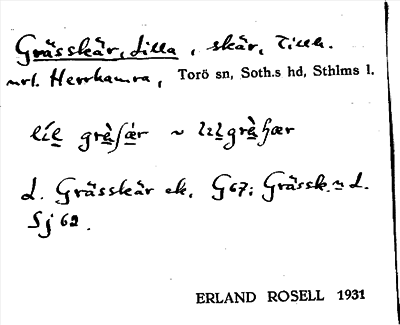 Grässkär, Lilla, skär, Tillh.
nrl. Herrhamra, Torö sn, Soth.s hd, Sthlms l.
lil gräsär ~ lilgräsær
L. Grässkär ek. G67; Grässk. n L.
Sj 62.
ERLAND ROSELL 1931